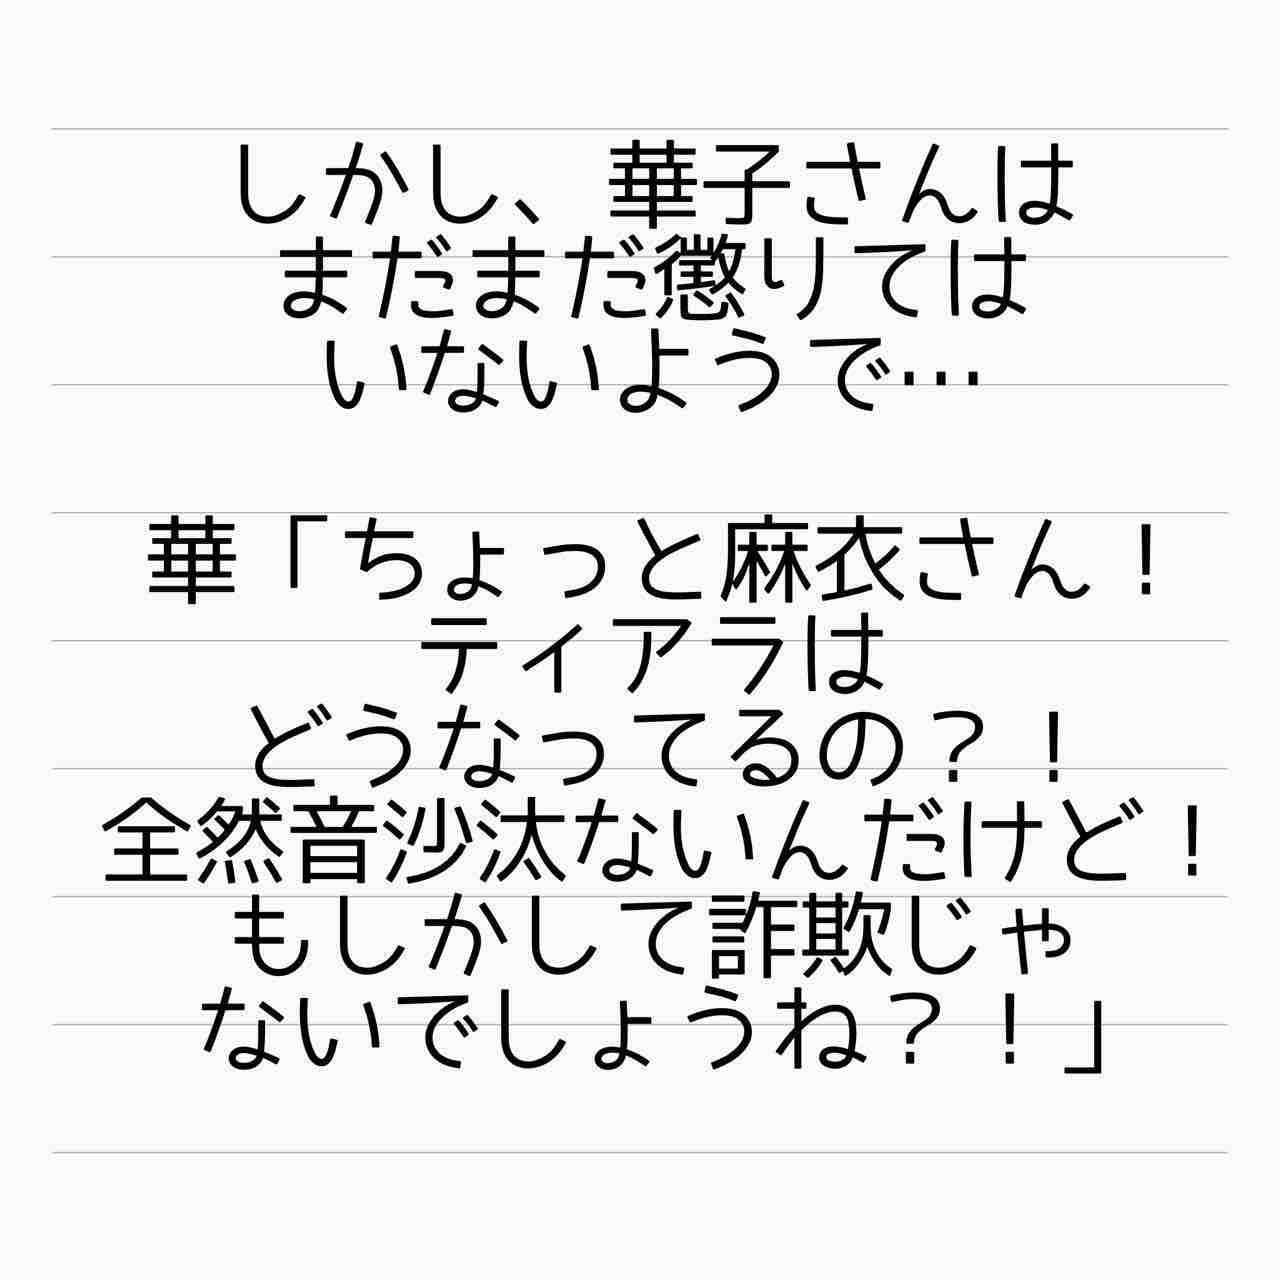 しかし、華子さんは
まだまだ懲りては
いないようで…
華「ちょっと麻衣さん！
ティアラは
どうなってるの？！
全然音沙汰ないんだけど！
もしかして詐欺じゃ
ないでしょうね？！」